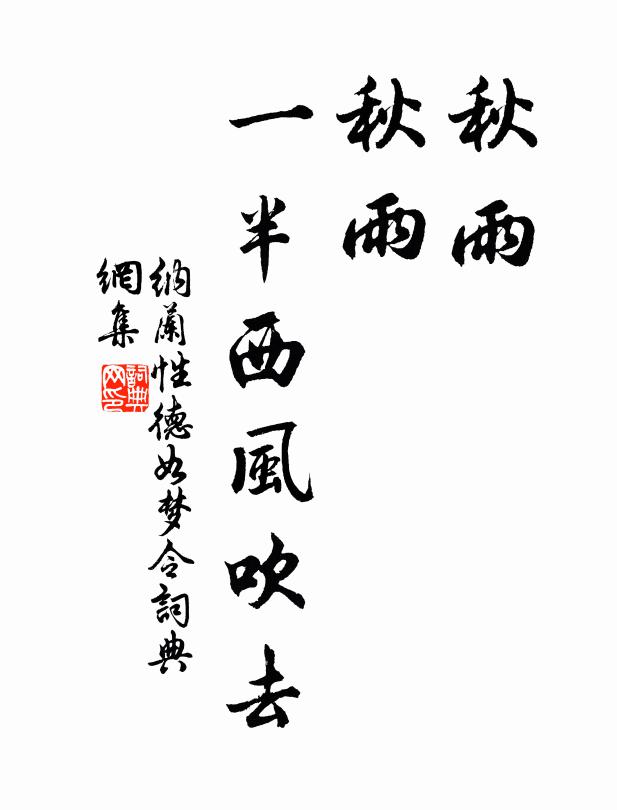 秋雨
秋雨
一半西風吹去
納蘭性德如梦令詞典
網集
詞典
网印